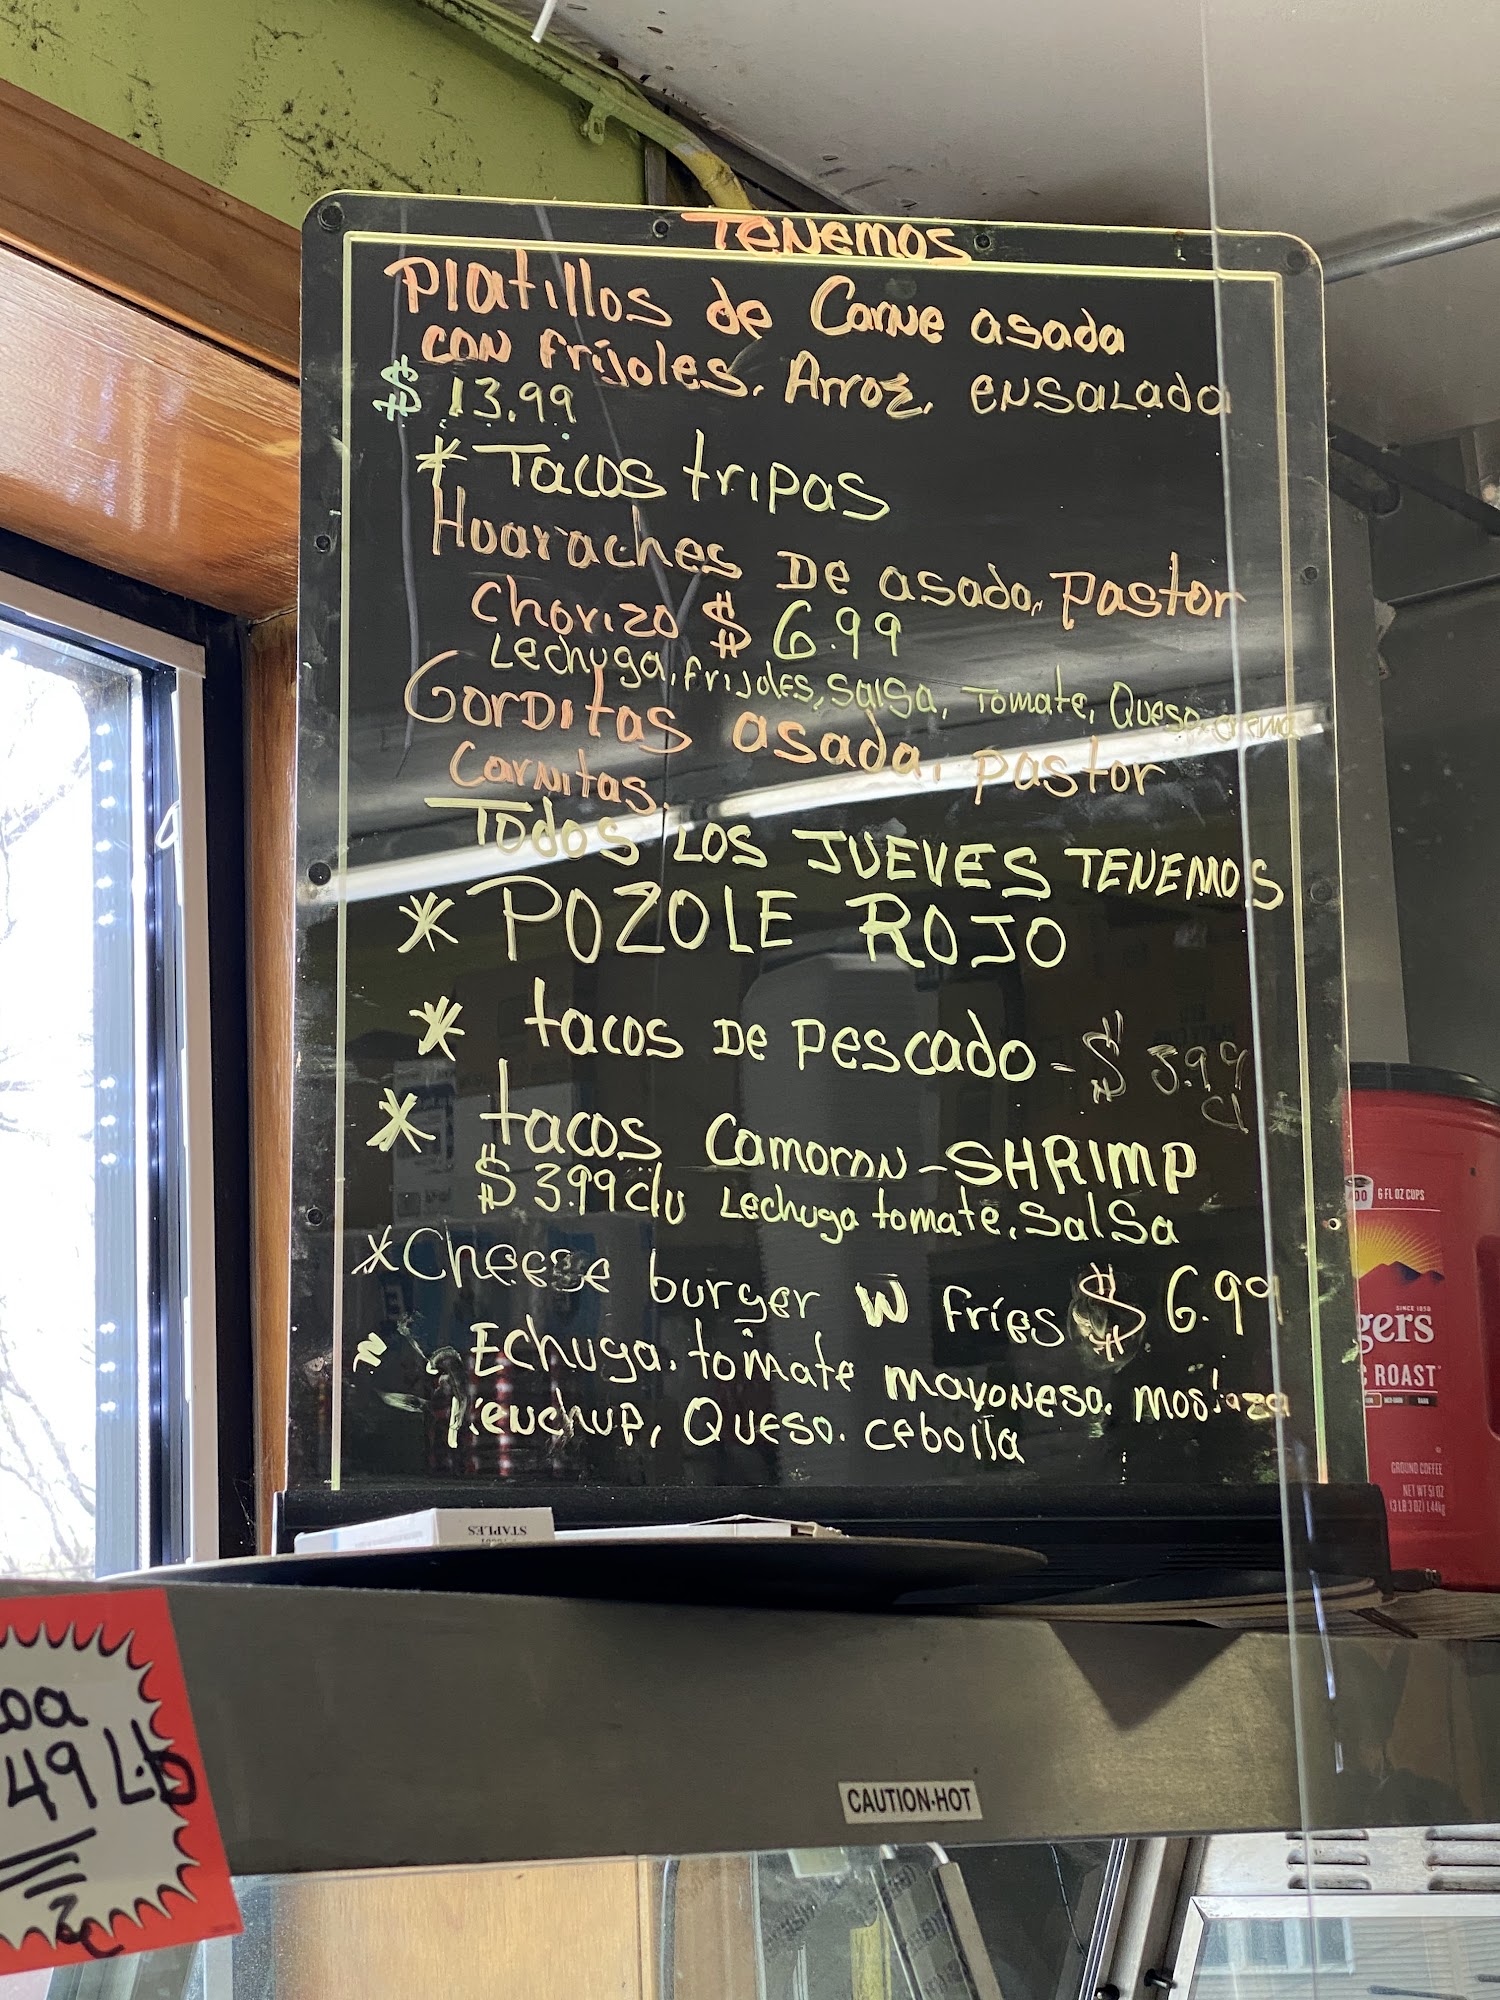 TENEMOS
Platillos de Carne asada
CON frijoles. Arroz. ENSALADA
$ 13.99
* Tacos tripas
Huaraches DE asada, Pastor
Chorizo $ 6.99
Lechuga, Frijoles, Salsa, Tomate, Queso, crema
GORDitas asada, pastor
Carnitas.
Todos LOS JUEVES TENEMOS
* POZOLE ROJO
* tacos DE pescado - $ 3.99
* tacos Camoron - SHRIMP
$ 3.99 c/u Lechuga tomate, SalSa
* Cheese burger W fries $ 6.99
Echuga. tomate mayoNesa. mostaza
Keuchup, Queso. cebolla
6 FL OZ CUPS
SINCE 1850
gers
ROAST
GROUND COFFEE
NET WT 51 OZ
(3 LB 3 OZ) 1.44kg
STAPLES
oa
49 Lb
CAUTION-HOT